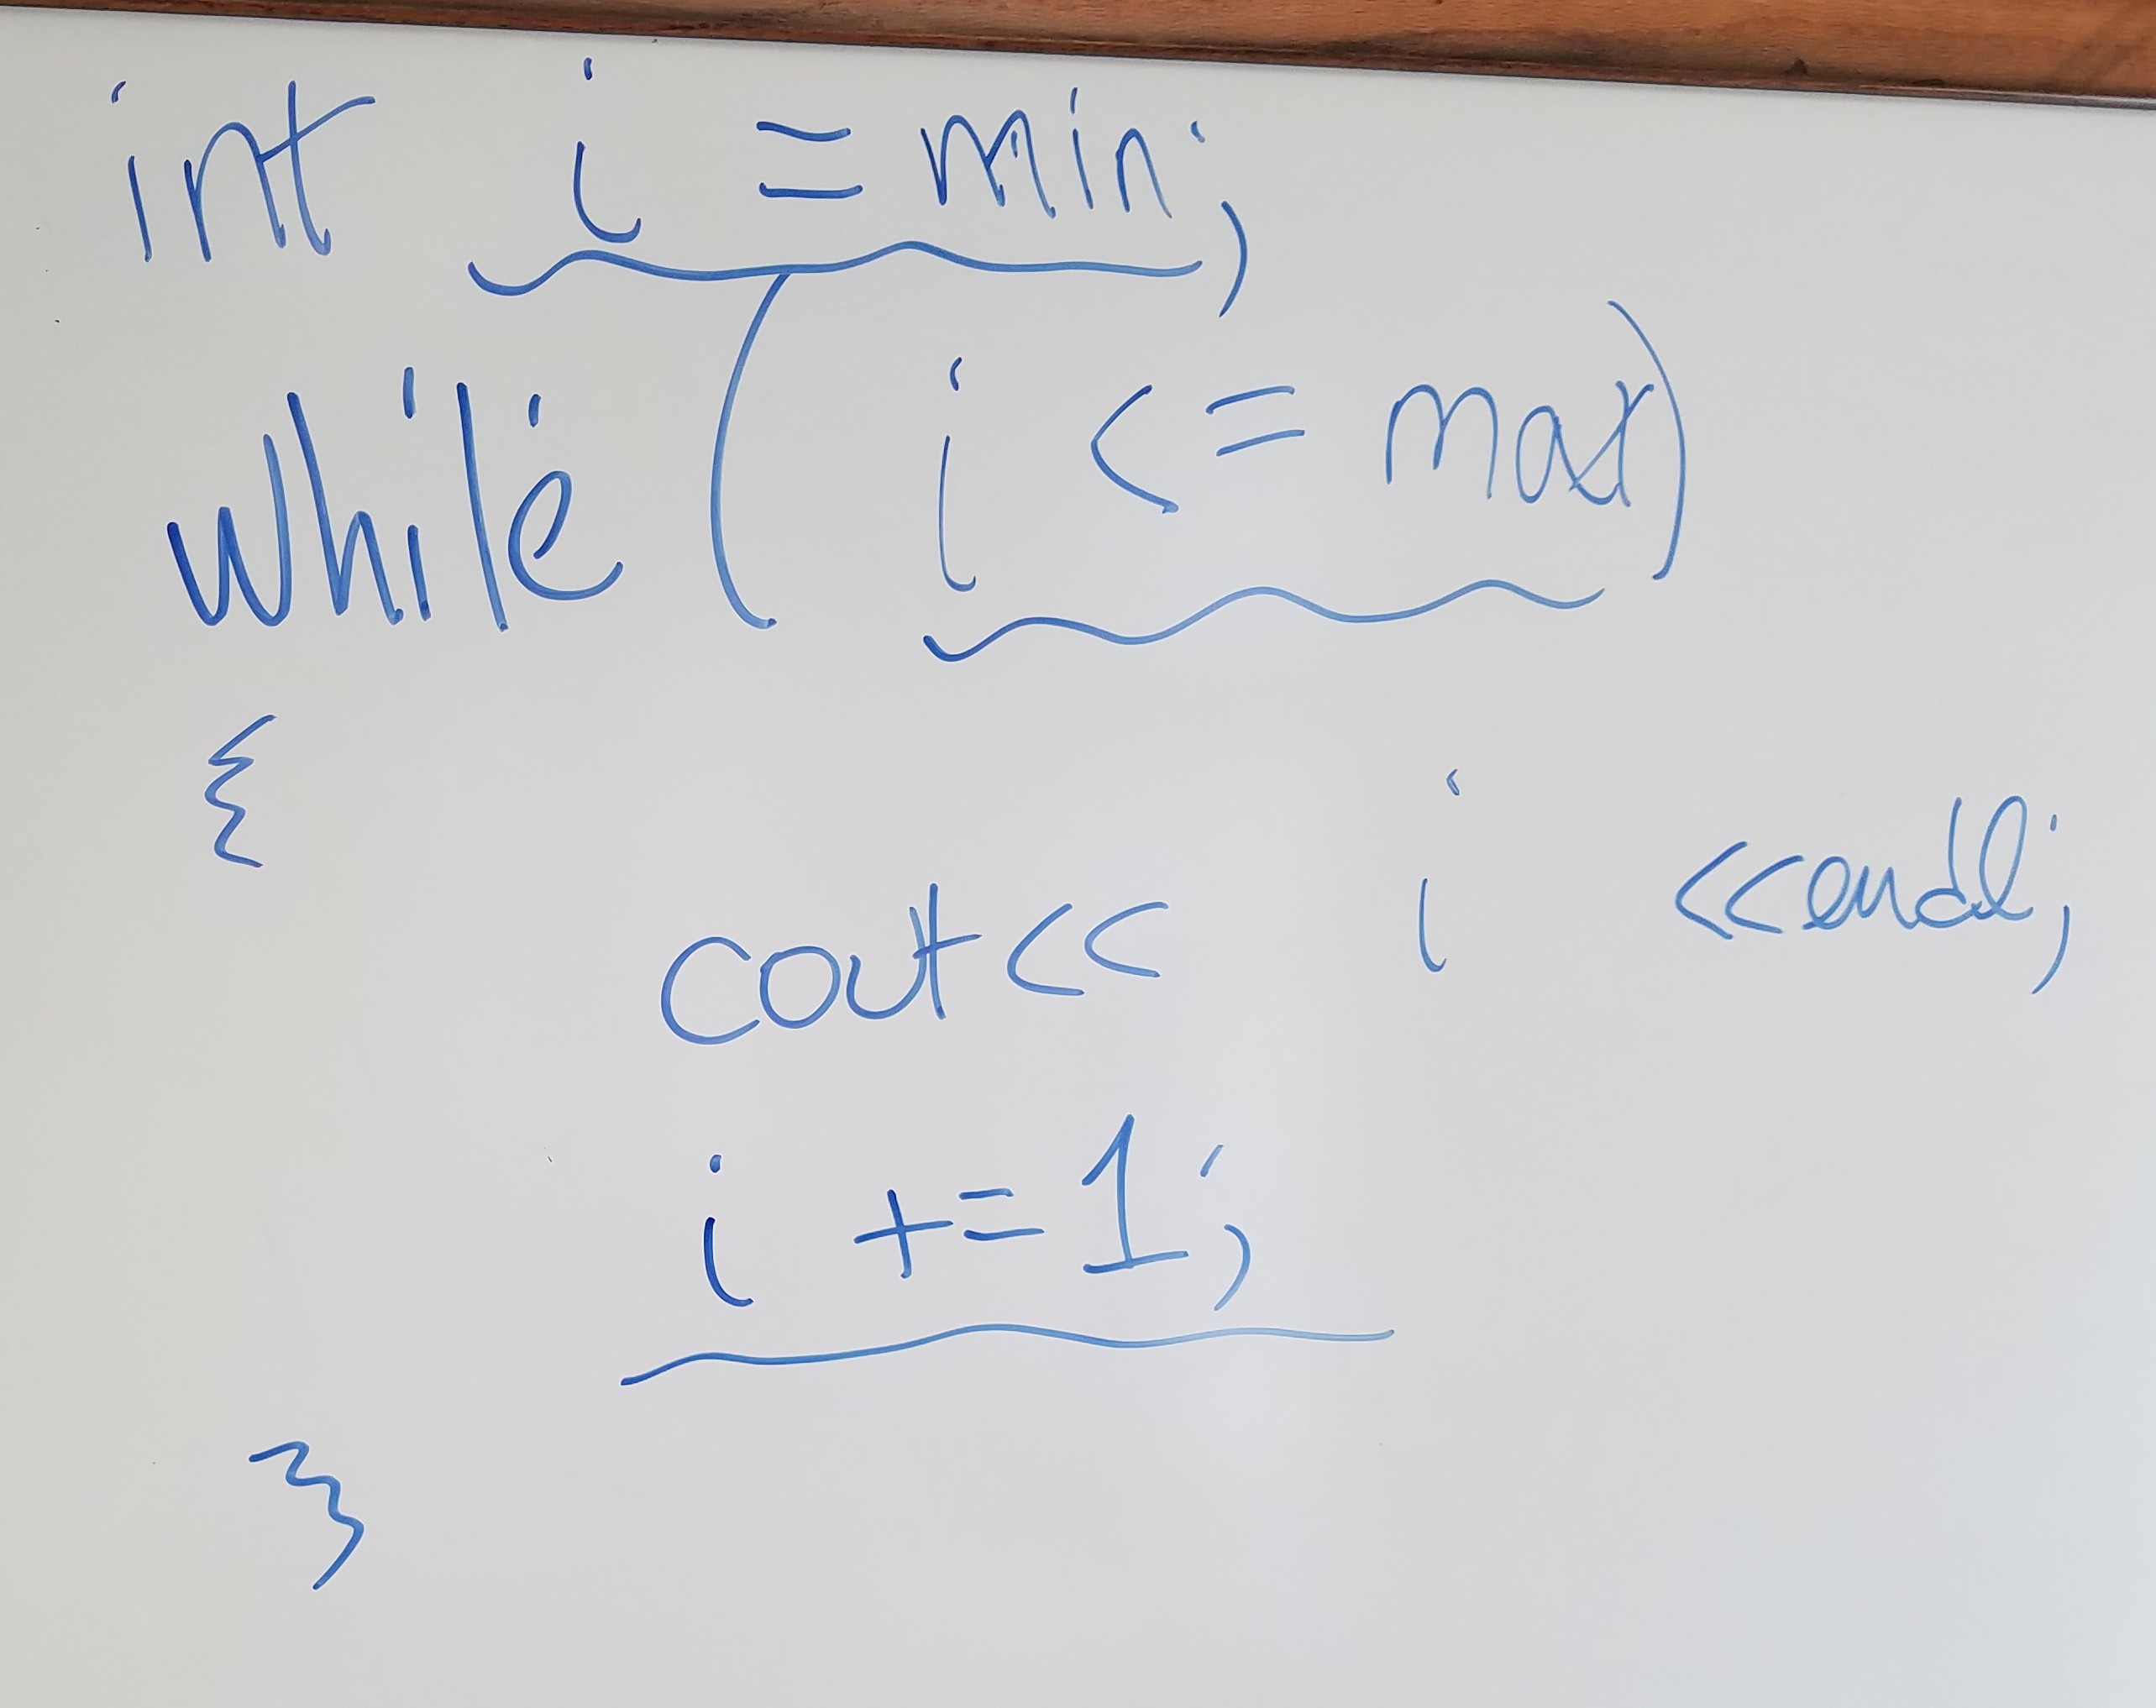 int i = min;
while ( i <= max)
{
cout<< i <<endl;
i += 1;
}